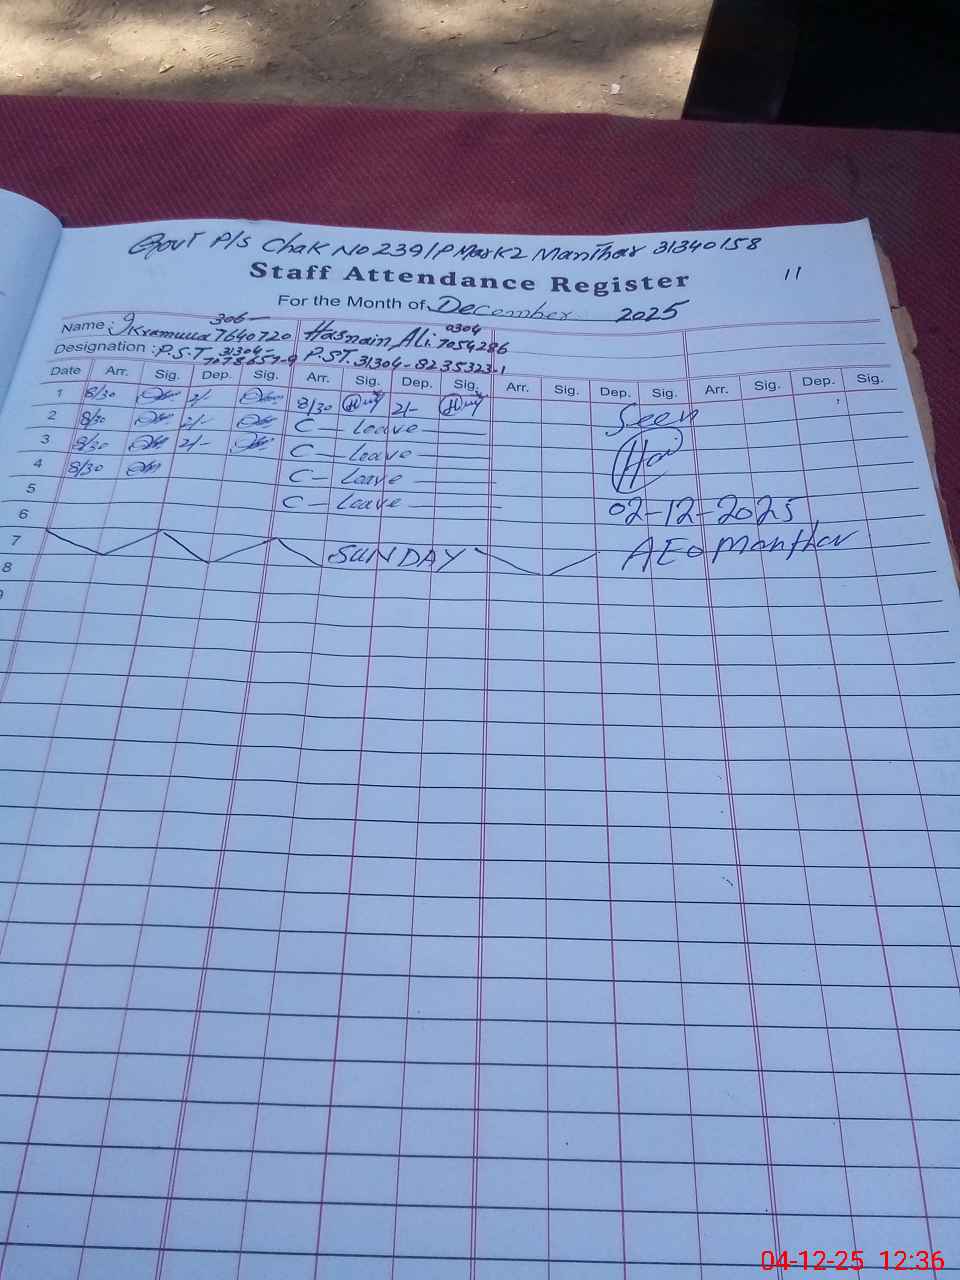 Govt P/S Chak No 239/P Mark2 Manthar 31340158
Staff Attendance Register
11
For the Month of December 2025
306-
0304
Name : Ikramulla 7640720 Hasnain Ali. 7054286
Designation : P.S.T 31304- P.ST. 31304-8235323-1
Date Arr. Sig. Dep. Sig. Arr. Sig. Dep. Sig. Arr. Sig. Dep. Sig. Arr. Sig. Dep. Sig.
1 8/30 2/- 8/30 2/- Seen
2 8/30 2/- C - Leave
3 8/30 2/- C - Leave
4 8/30 C - Leave
5 C - Leave 02-12-2025
6
7 SUNDAY AEO Manthar
8
9
04-12-25 12:36